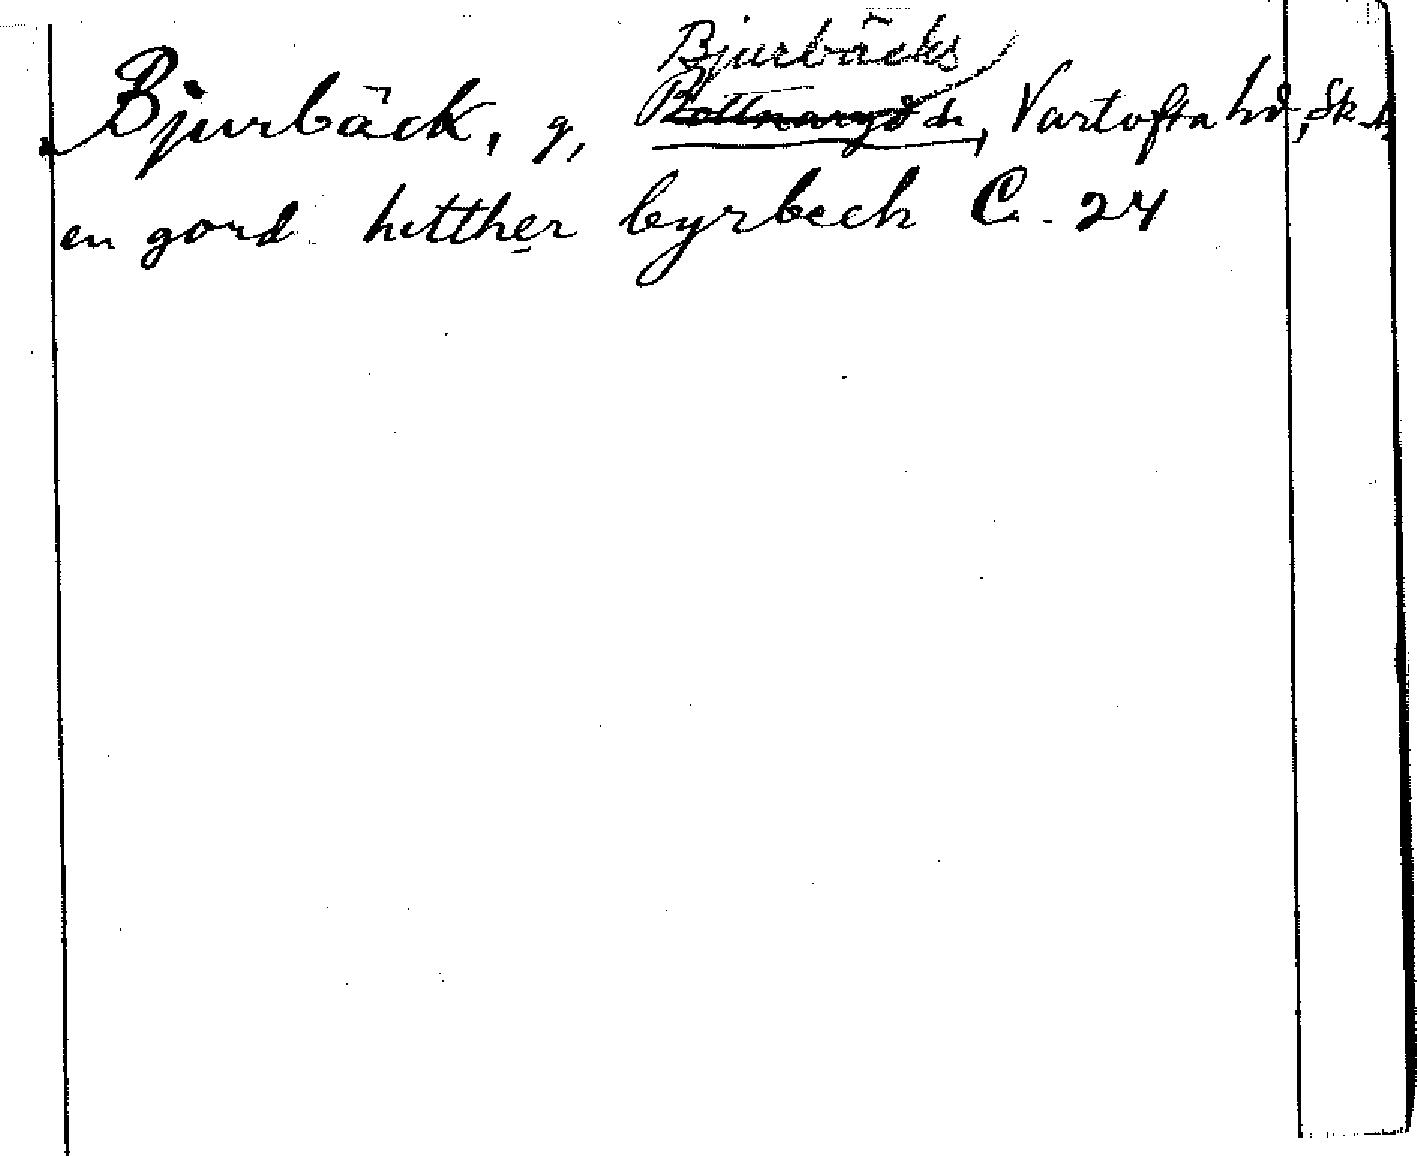 Bjurbäcks
Bjurbäck, g, Bottnaryds sn, Vartofta hd, Sk. l.
en gord hetther byrbech C. 24